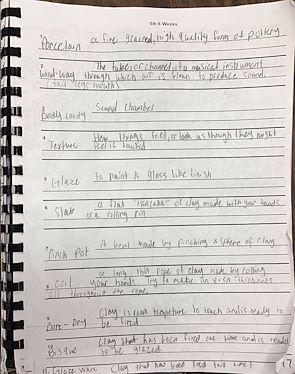 5th 6 Weeks
1 Porcelain a fine grained, high quality form of pottery
2 The tube or channel of a musical instrument
wind-way through which air is blown to produce sound.
(tail legs mouth)
3 Body cavity Sound chamber
4 How things feel, or look as though they might
Texture feel if touched
5 Glaze to paint. A glass like finish
6 Slab a flat "Pancake" of clay made with your hands
or a rolling pin
7 Pinch Pot A bowl made by pinching a sphere of clay
a long thin rope of clay made by rolling
8 Coil your hands. Try to make an even thickness
all throughout the rope.
9 Bone Dry Clay is room tempeture to touch and is ready to
be fired
10 Bisque Clay that has been fired one time and is ready
to be glazed.
11 Glaze Ware Clay that has been fired two times
17